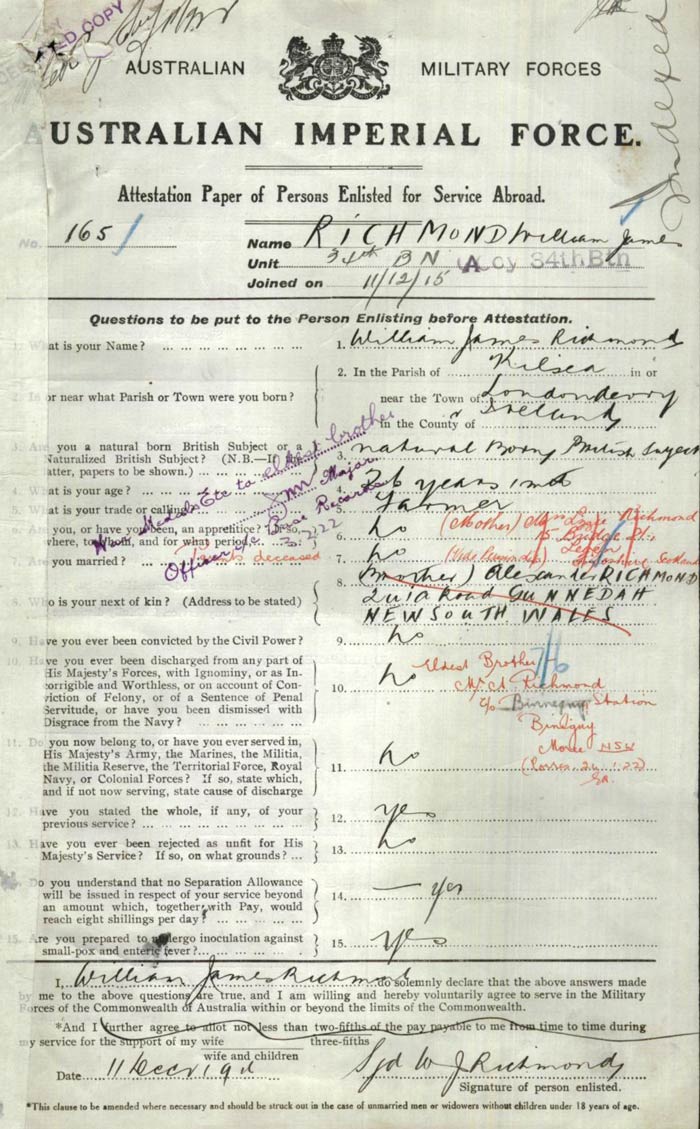 COPY
AUSTRALIAN MILITARY FORCES
Indexed
AUSTRALIAN IMPERIAL FORCE.
Attestation Paper of Persons Enlisted for Service Abroad.
No. 165
Name RICHMOND William James
Unit 34th BN A Coy 34th Btn
Joined on 11/12/15
Questions to be put to the Person Enlisting before Attestation.
1. What is your Name? 1. William James Richmond
2. In the Parish of Kilsea in or
2. In or near what Parish or Town were you born? near the Town of Londonderry
in the County of Ireland
3. Are you a natural born British Subject or a
Naturalized British Subject? (N.B.—If the
latter, papers to be shown.) 3. natural Born British Subject
4. What is your age? 4. 26 years 1 mth
5. What is your trade or calling 5. Farmer
6. Are you, or have you been, an apprentice? If so,
where, to whom, and for what period 6. no
(Mother) Richmond
7. Are you married? 7. no
Parents deceased
War Medals Etc to eldest brother
Major
Officer i/c Base Records
2/22
Scotland
8. Who is your next of kin? (Address to be stated) 8. (Brother) Alexander RICHMOND
Road GUNNEDAH
NEW SOUTH WALES
9. Have you ever been convicted by the Civil Power? 9. no
10. Have you ever been discharged from any part of
His Majesty's Forces, with Ignominy, or as In-
corrigible and Worthless, or on account of Con-
viction of Felony, or of a Sentence of Penal
Servitude, or have you been dismissed with
Disgrace from the Navy? 10. no
Eldest Brother
Mr A Richmond
c/o Binneguy Station
Biniguy
Moree NSW
11. Do you now belong to, or have you ever served in,
His Majesty's Army, the Marines, the Militia,
the Militia Reserve, the Territorial Force, Royal
Navy, or Colonial Forces? If so, state which,
and if not now serving, state cause of discharge 11. no
12. Have you stated the whole, if any, of your
previous service? 12. yes
13. Have you ever been rejected as unfit for His
Majesty's Service? If so, on what grounds? 13. no
14. Do you understand that no Separation Allowance
will be issued in respect of your service beyond
an amount which, together with Pay, would
reach eight shillings per day? 14. yes
15. Are you prepared to undergo inoculation against
small-pox and enteric fever? 15. yes
I, William James Richmond do solemnly declare that the above answers made
by me to the above questions are true, and I am willing and hereby voluntarily agree to serve in the Military
Forces of the Commonwealth of Australia within or beyond the limits of the Commonwealth.
*And I further agree to allot not less than two-fifths of the pay payable to me from time to time during
three-fifths
my service for the support of my wife
wife and children
Date 11 Decr 191 Sgd W J Richmond
Signature of person enlisted.
*This clause to be amended where necessary and should be struck out in the case of unmarried men or widowers without children under 18 years of age.